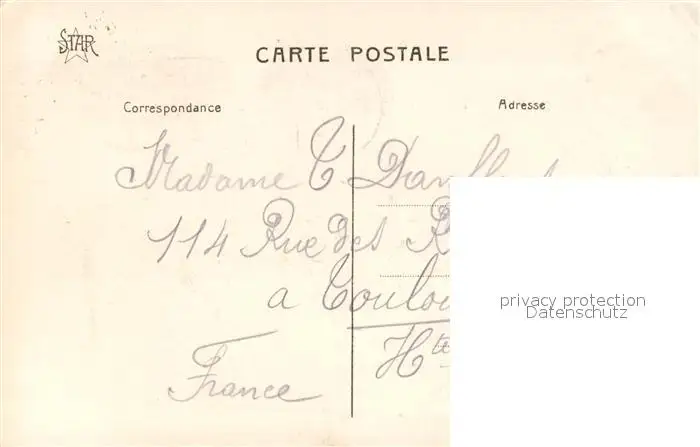 STAR
CARTE POSTALE
Correspondance
Adresse
Madame T.
114 Rue des
a Toulou
Hte
France
privacy protection
Datenschutz